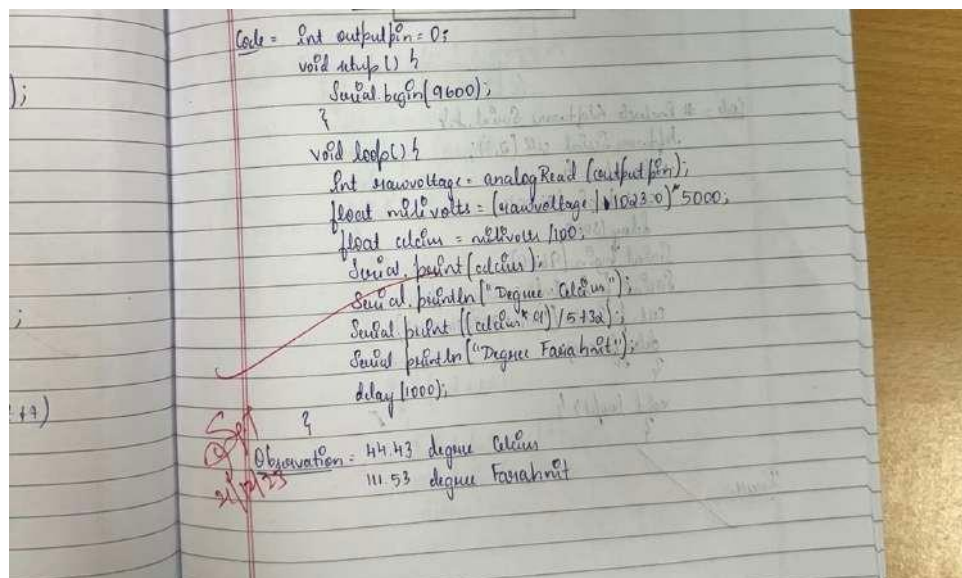 );
;
+7)
Code = int outputpin = 0;
void setup() {
Serial.begin(9600);
}
void loop() {
int rawvoltage = analogRead(outputpin);
float milivolts = (rawvoltage / 1023.0) * 5000;
float celcius = milivolts /100;
Serial.print(celcius);
Serial.println("Degree Celcius");
Serial.print((celcius * 9) / 5 + 32);
Serial.println("Degree Farahnit");
delay (1000);
}
Observation = 44.43 degree Celcius
111.53 degree Farahnit